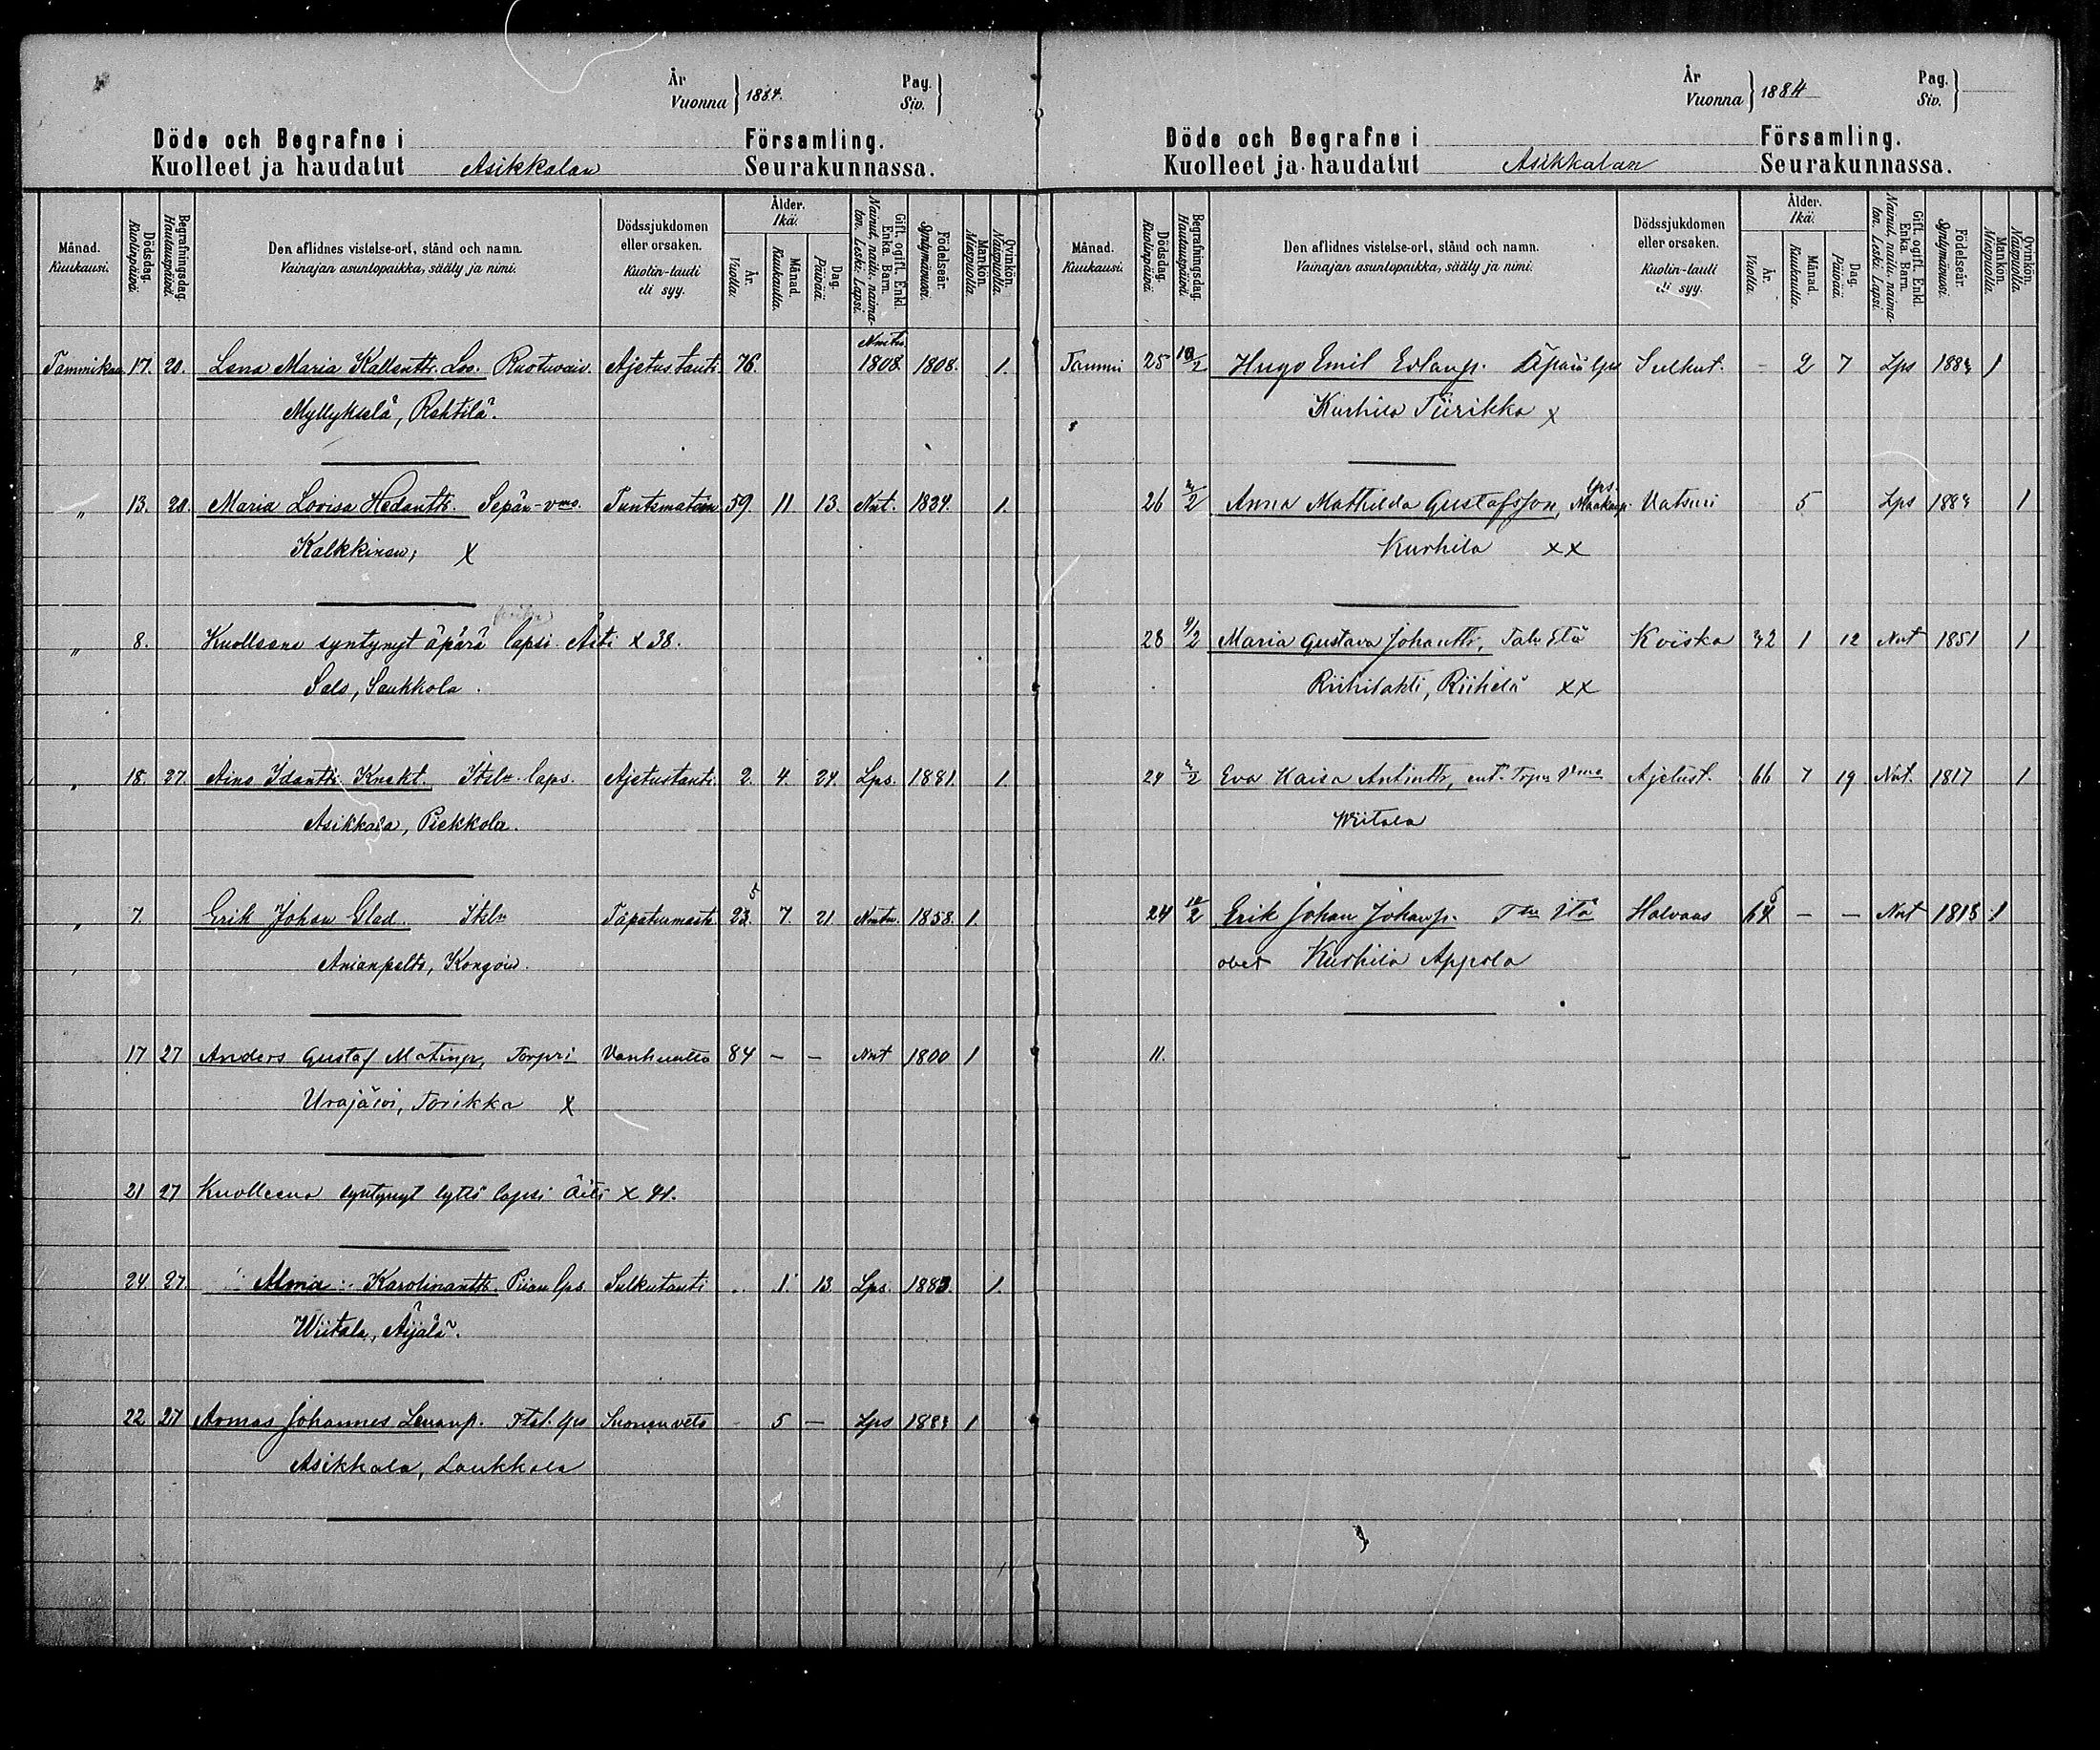 År
Vuonna } 1884.
Pag.
Siv. }
Döde och Begrafne i Församling.
Kuolleet ja haudatut Asikkalan Seurakunnassa.
Månad. Kuukausi.
Dödsdag. Kuolinpäivä.
Begrafningsdag. Hautauspäivä.
Den aflidnes vistelse-ort, stånd och namn.
Vainajan asuntopaikka, sääty ja nimi.
Dödssjukdomen eller orsaken.
Kuolin-tauti eli syy.
Ålder. Ikä.
År. Vuotta.
Månad. Kuukautta.
Dag. Päivää.
Gift, ogift. Enkl. Enka. Barn. Nainut, naitu, naimaton. Leski. Lapsi.
Födelseår. Syntymävuosi.
Mankön. Miespuolia.
Qvinkön. Naispuolia.
Tammikuu 17. 20. Lena Maria Kallentr. Loo. Ruotuvaiv. Ajetus tauti 76. Nmtn. 1808. 1808. 1.
Myllykselä, Rehtilä.
„ 13. 20. Maria Lovisa Hedantr. Sepän-vmo. Tuntematoin 59. 11 13. Nnt. 1834. 1.
Kalkkinen, X
„ 8. Kuolleena syntynyt äpärä lapsi. Äiti x 38.
Salo, Saukkola.
„ 18. 27. Aino Idantr. Knekt. Itsln. laps. Ajetustauti. 2. 4. 24. Lps. 1881. 1.
Asikkala, Piekkola.
„ 7. Erik Johan Glad. Itsln Tapaturmasti 23. 5 7. 21 Nmtn. 1858. 1.
Anianpelto, Kongoin.
17 27 Anders Gustaf Matinp, Torpri Vanhuutta 84 — — Nnt 1800 1
Urajärvi, Torikka X
21 27 Kuolleena syntynyt tyttö lapsi Äiti x 41.
24. 27. Alma Karolinantr. Piian lps. Sulkutauti 1. 13 Lps. 1883. 1.
Wiitala, Äijälä.
22 27 Aomas Johannes Lenanp. Itsl. lps Suonenveto - 5 — Lps 1883 1
Asikkala, Laukkala
År
Vuonna } 1884
Pag.
Siv. }
Döde och Begrafne i Församling.
Kuolleet ja haudatut Asikkalan Seurakunnassa.
Månad. Kuukausi.
Dödsdag. Kuolinpäivä.
Begrafningsdag. Hautauspäivä.
Den aflidnes vistelse-ort, stånd och namn.
Vainajan asuntopaikka, sääty ja nimi.
Dödssjukdomen eller orsaken.
Kuolin-tauti eli syy.
Ålder. Ikä.
År. Vuotta.
Månad. Kuukautta.
Dag. Päivää.
Gift, ogift. Enkl. Enka. Barn. Nainut, naitu, naimaton. Leski. Lapsi.
Födelseår. Syntymävuosi.
Mankön. Miespuolia.
Qvinkön. Naispuolia.
Tammi 25 10/2 Hugo Emil Evlanp. Äpärä lps Sulkut. - 2 7 Lps 1883 1
Kurhila Tiirikka x
26 3/2 Anna Mathilda Gustafsson, Maakaup. lps. Vatsuri 5 Lps 1883 1
Kurhila xx
28 9/2 Maria Gustava Johantr, Tal. Etä Kviska 32 1 12 Nnt 1851 1
Riihilahti, Riihelä xx
24 3/2 Eva Kaisa Antintr, ent. Torp. Vmo Ajetust. 66 7 19 Nnt. 1817 1
Wiitala
24 12/2 Erik Johan Johanp. Itä Halvaus 64 — — Nnt 1818 1
Kurhila Appola
11.